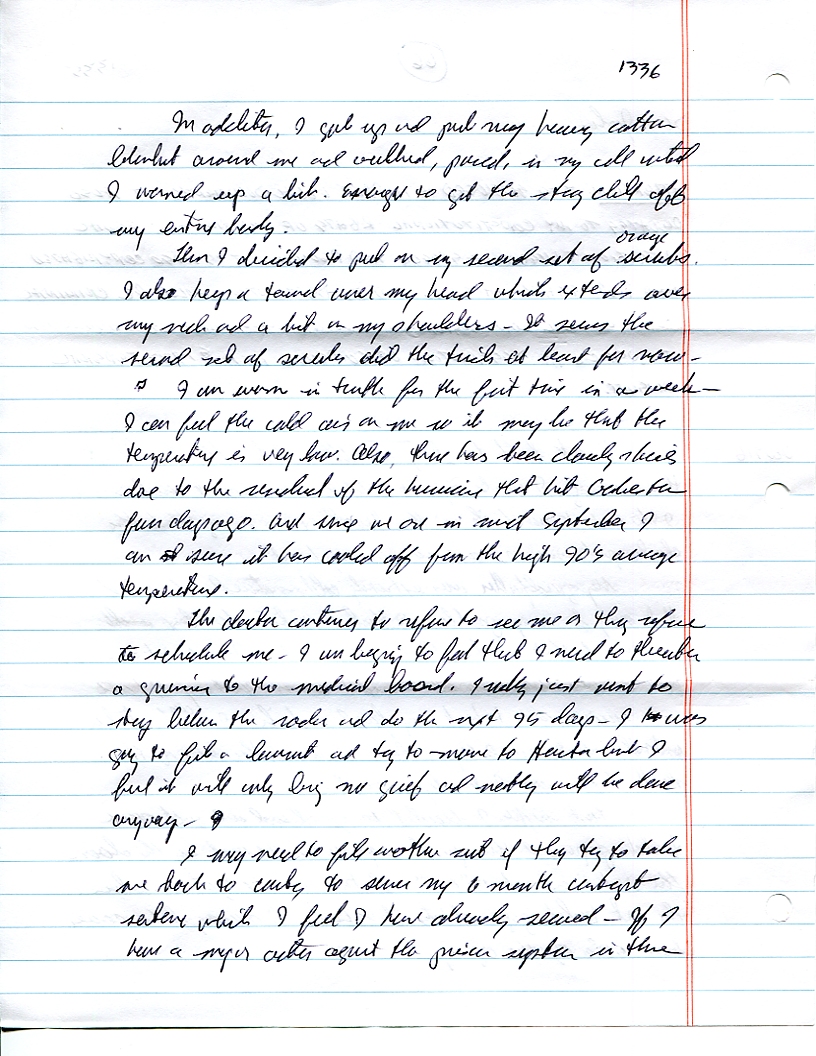 1336
In addition, I got up and put my heavy cotton
blanket around me and walked, paced, in my cell until
I warmed up a bit. Enough to get the chill off
my entire body.
orange
Then I decided to put on my second set of scrubs.
I also keep a towel over my head which extends over
my neck and a bit on my shoulders - It seems the
second set of scrubs did the trick at least for now -
I am warm in truth for the first time in a week -
I can feel the cold air on me so it may be that the
temperature is very low. Also, there has been cloudy skies
due to the residual of the hurricane that hit
few days ago. And since we are in mid September I
am sure it has cooled off from the high 90's average
temperature.
The doctor continues to refuse to see me or they refuse
to schedule me - I am beginning to feel that I need to threaten
a grievance to the medical board. I really just want to
stay below the radar and do the next 95 days - I was
going to file a lawsuit and try to move to but I
feel it will only bring me grief and nothing will be done
anyway -
I may need to file another suit if they try to take
me back to to serve my 6 month contempt
sentence which I feel I have already served - If I
have a major action against the prison system in three